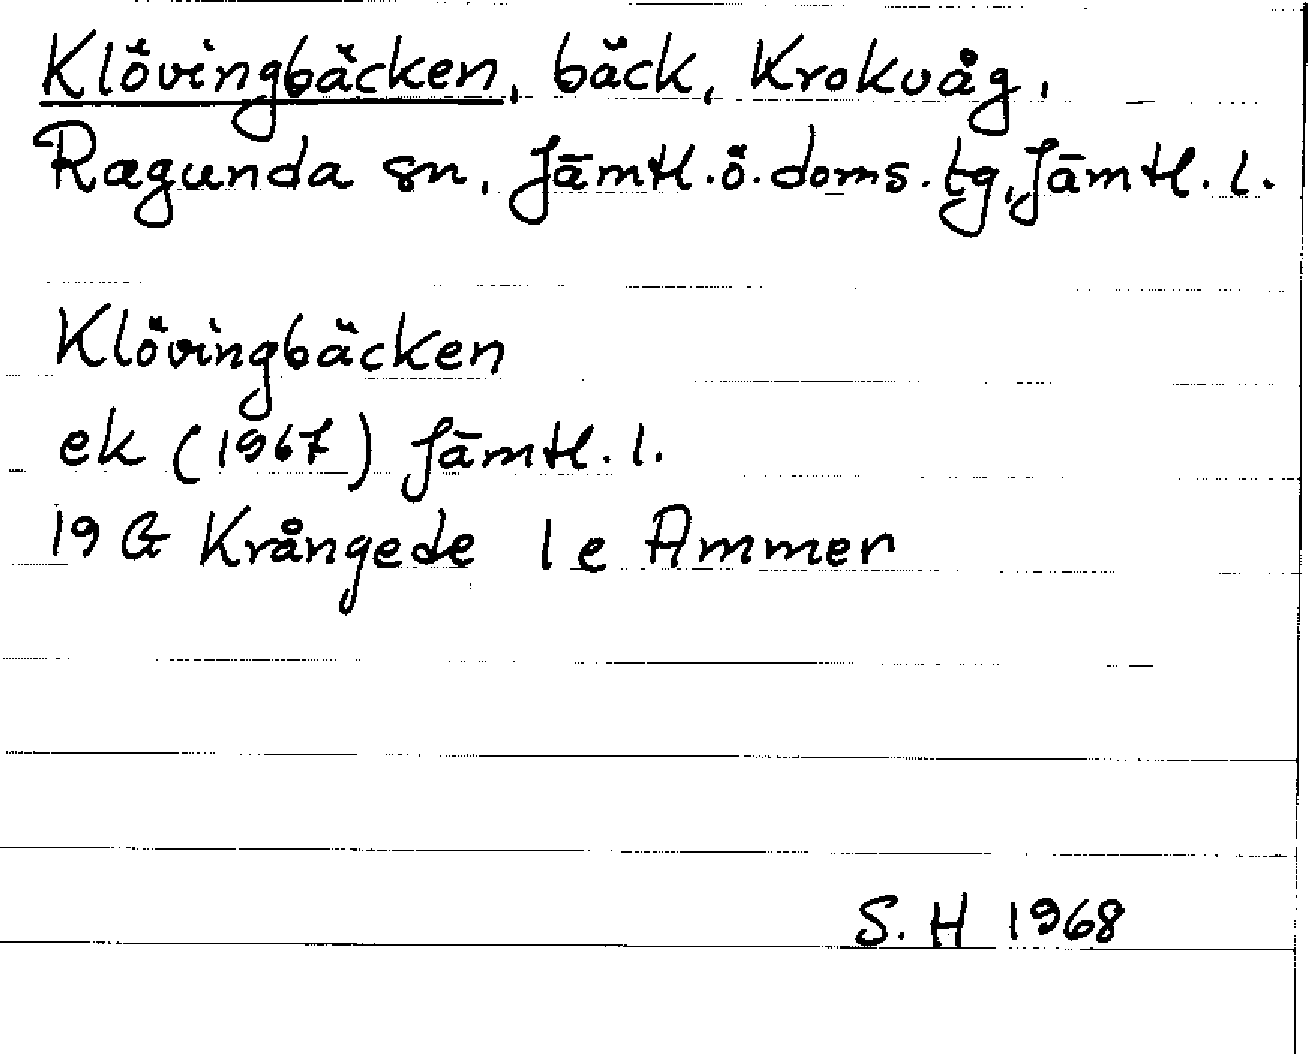 Klövingbäcken, bäck, Krokvåg,
Ragunda sn, Jämtl.ö.doms.tg, Jämtl. l.
Klövingbäcken
ek (1967) Jämtl. l.
19 G Krångede 1 e Ammer
S. H 1968